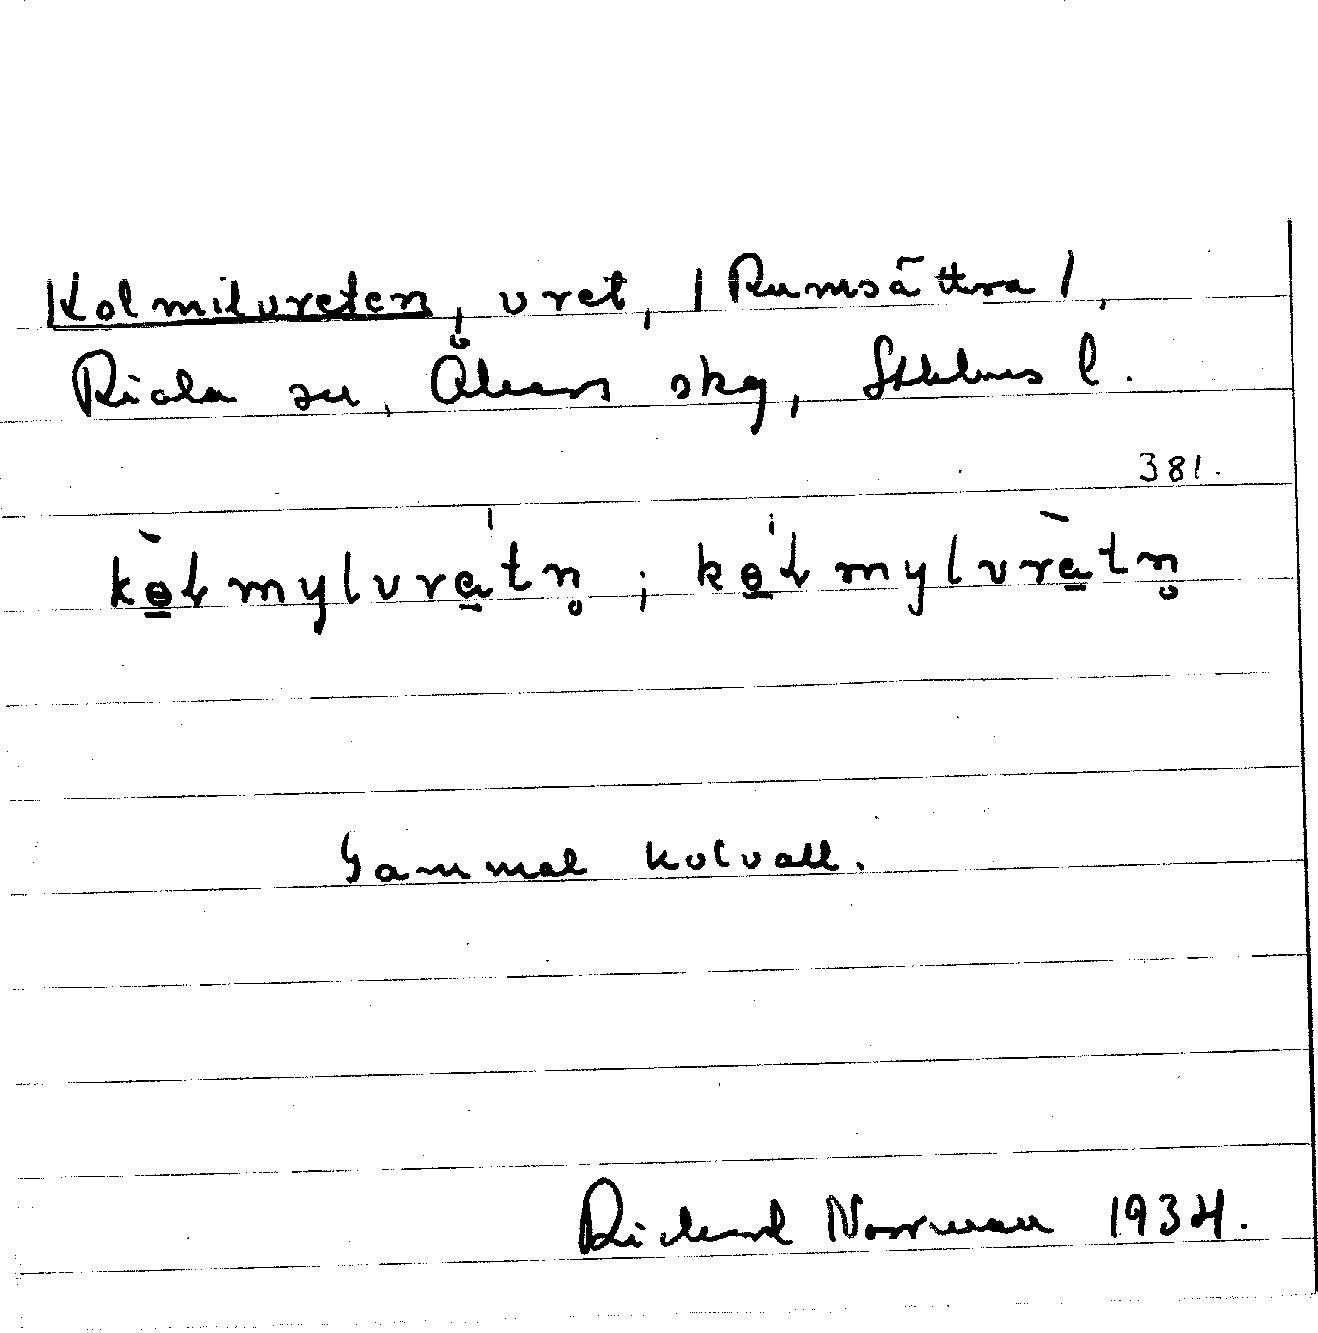 Kolmilvreten, vret, / Rumsättra /,
Riala sn, Åkers skg, Sthlms l.
381.
kɵ̀ɫmylvra̍tn̥ ; kɵ̍ɫmylvràtn̥
Gammal kolvall.
Rickard Norrman 1934.